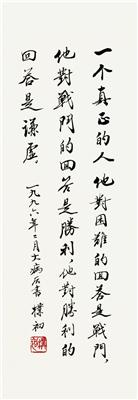 一个真正的人他對困難的回答是戰鬥，
他對戰鬥的回答是勝利，他對勝利的
回答是謙虛。
一九九六年二月大病后書 樸初